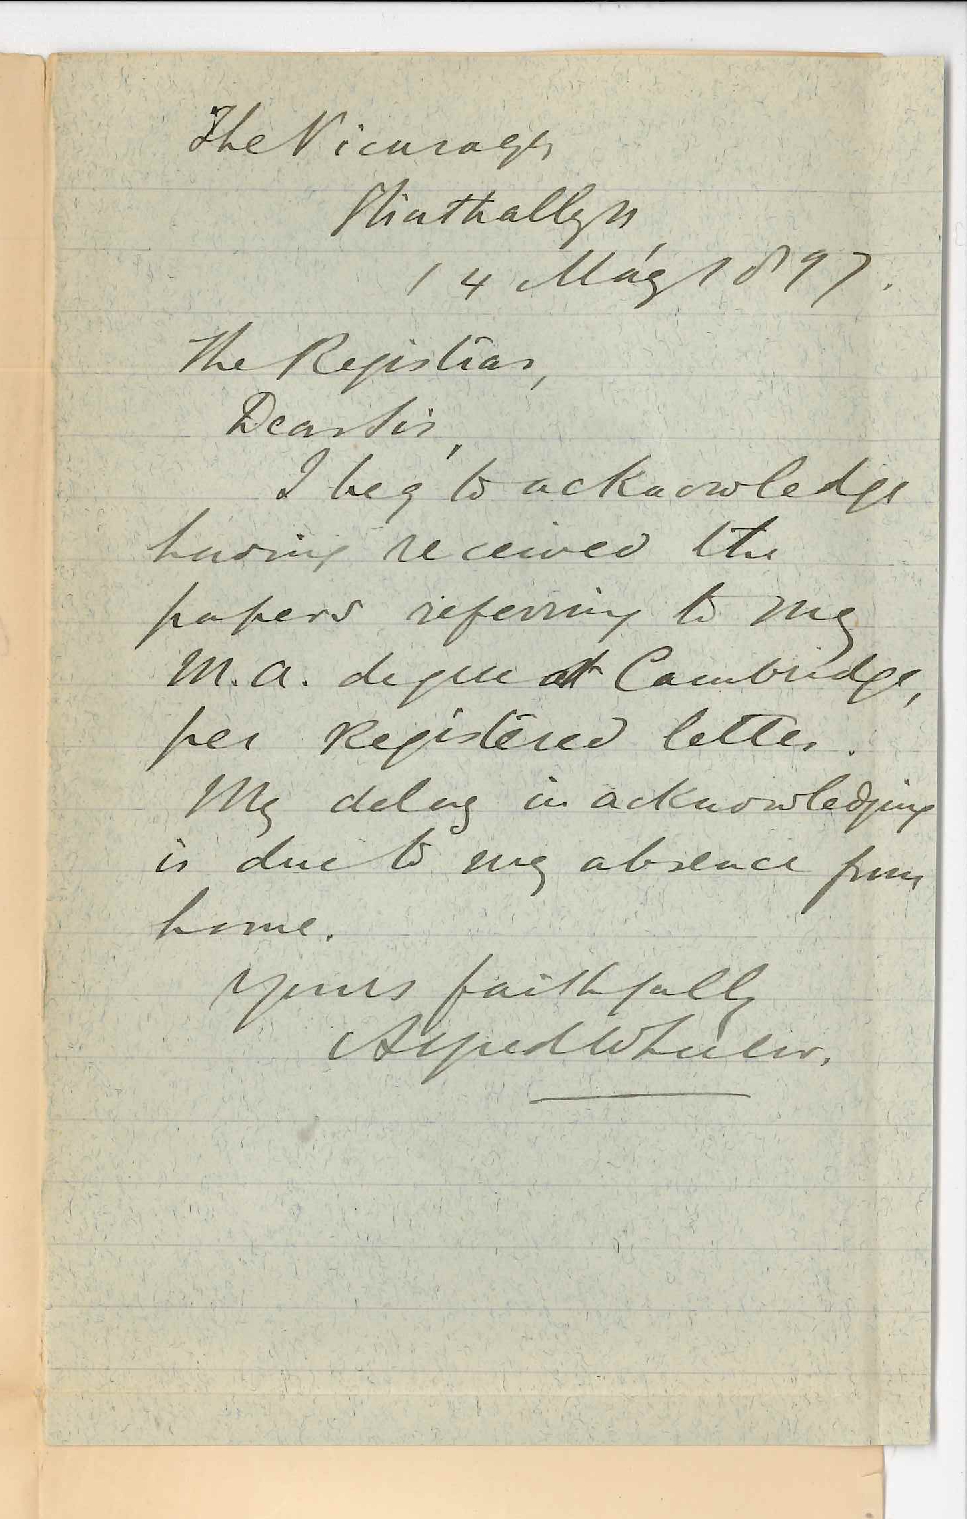 The Vicarage
Strathallyn
14 May 1897.
The Registrar,
Dear Sir,
I beg to acknowledge
having received the
papers referring to my
M.A. degree at Cambridge,
per Registered letter.
My delay in acknowledging
is due to my absence from
home.
Yours faithfully
Alfred Wheeler.